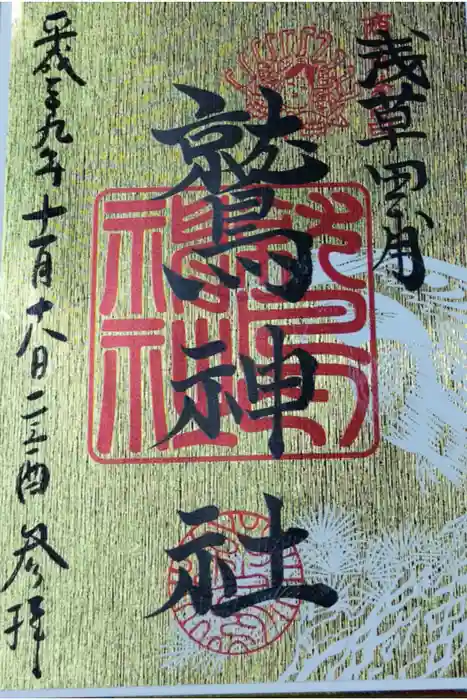 浅草田甫
鷲神社
平成二九年十一月十八日二の酉参拝